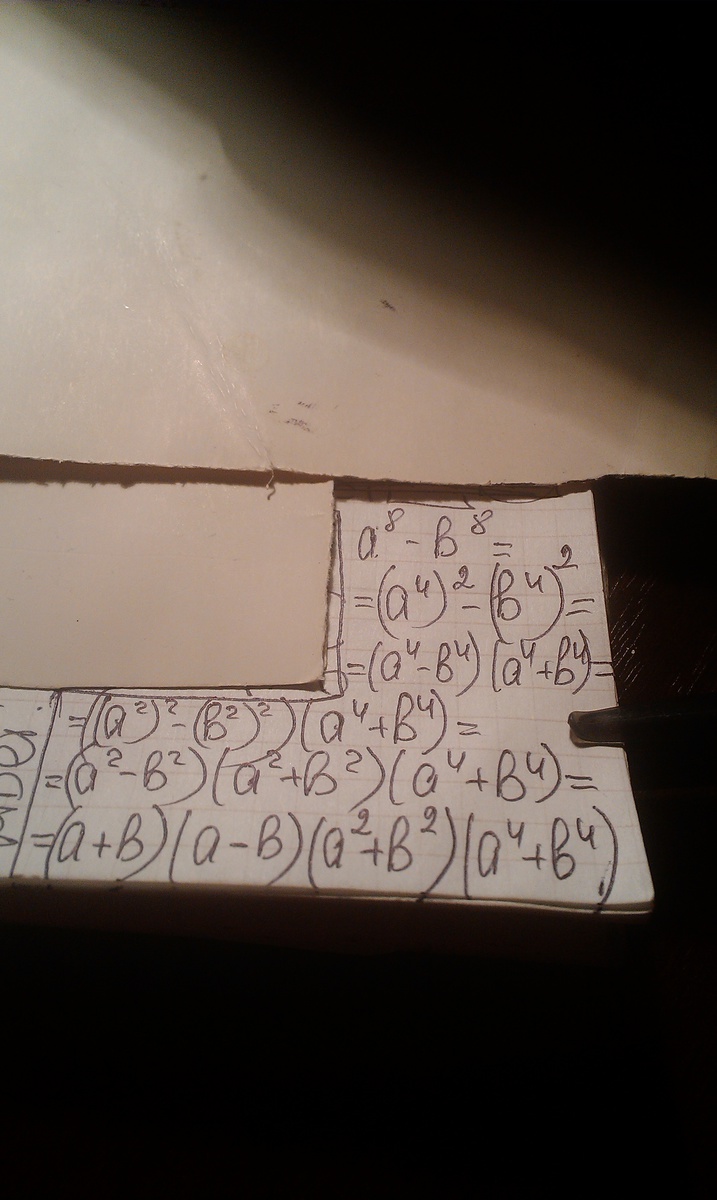 a⁸ - b⁸ =
= (a⁴)² - (b⁴)² =
= (a⁴ - b⁴) (a⁴ + b⁴) =
= ((a²)² - (b²)²) (a⁴ + b⁴) =
= (a² - b²) (a² + b²) (a⁴ + b⁴) =
= (a + b) (a - b) (a² + b²) (a⁴ + b⁴)